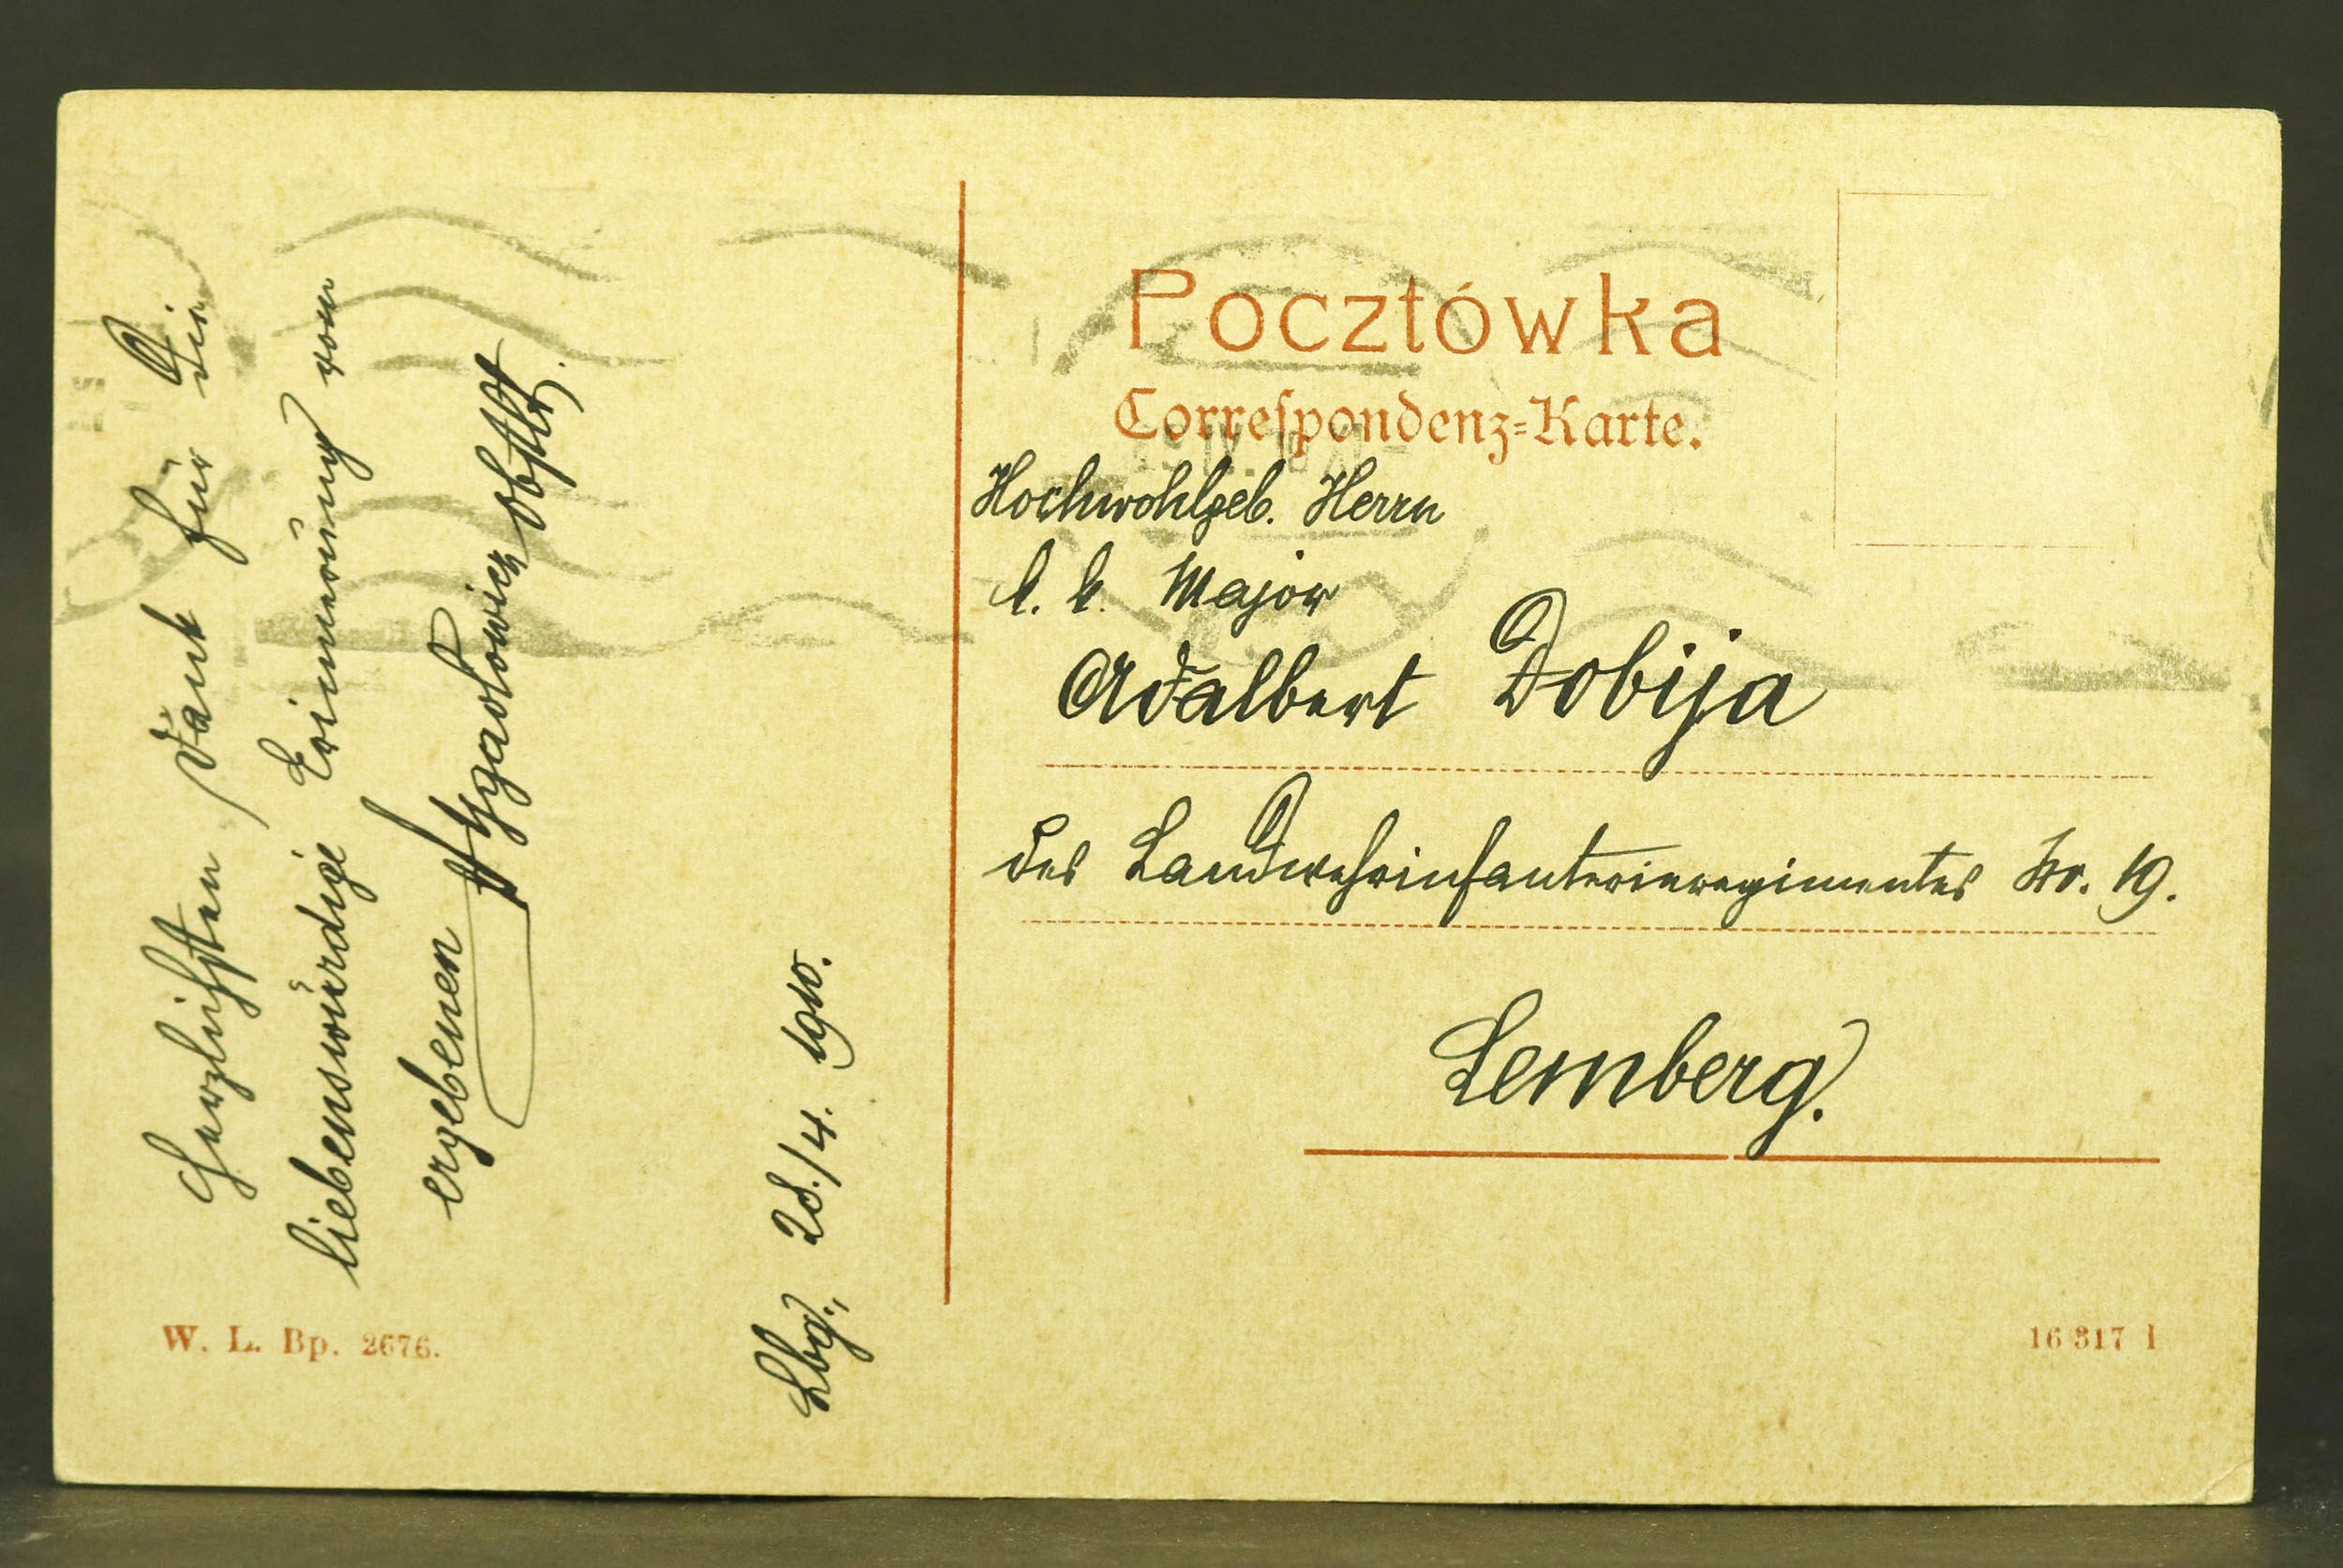 Pocztówka
Correspondenz-Karte.
Hochwohlgeb. Herrn
k. k. Major
Adalbert Dobija
des Landwehrinfanterieregimentes Nr. 19.
Lemberg.
Herzlichsten Dank für die
liebenswürdige Erinnerung vom
ergebenen
Obstlt.
Lbg., 28./4. 1910.
W. L. Bp. 2676.
16 317 1